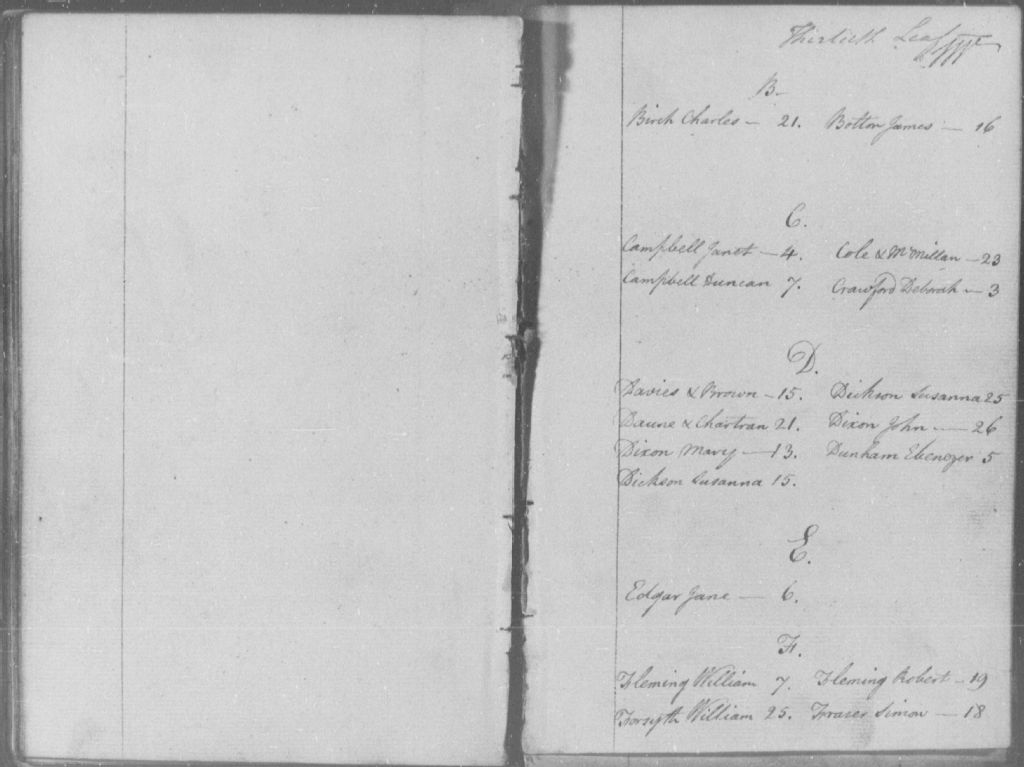 Thirtieth Leaf
B.
Birch Charles — 21. Botton James — 16
C.
Campbell Janet — 4. Cole & McMillan — 23
Campbell Duncan 7. Crawford Deborah — 3
D.
Davies & Brown — 15. Dickson Susanna 25
Daune & Chartran 21. Dixon John — 26
Dixon Mary — 13. Dunham Ebenezer 5
Dickson Susanna 15.
E.
Edgar Jane — 6.
F.
Fleming William 7. Fleming Robert — 19
Forsyth William 25. Fraser Simon — 18